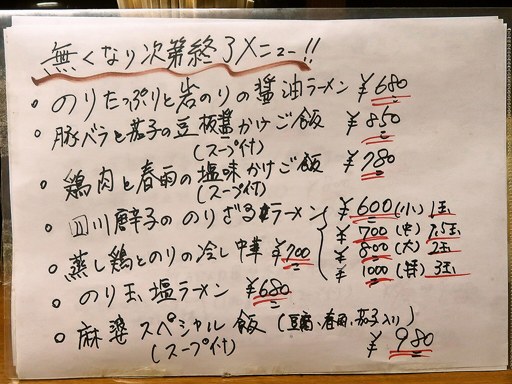 無くなり次第終了メニュー!!
・のりたっぷりと岩のりの醤油ラーメン ¥680
・豚バラと茄子の豆板醤かけご飯 ¥850
(スープ付)
・鶏肉と春雨の塩味かけご飯 ¥780
(スープ付)
・四川唐辛子ののりざるラーメン ¥600(小)1玉
¥700(中)1.5玉
¥800(大)2玉
¥1000(特)3玉
・蒸し鶏とのりの冷し中華 ¥700
・のり玉塩ラーメン ¥680
・麻婆スペシャル飯(豆腐、春雨、茄子入り)
(スープ付) ¥980